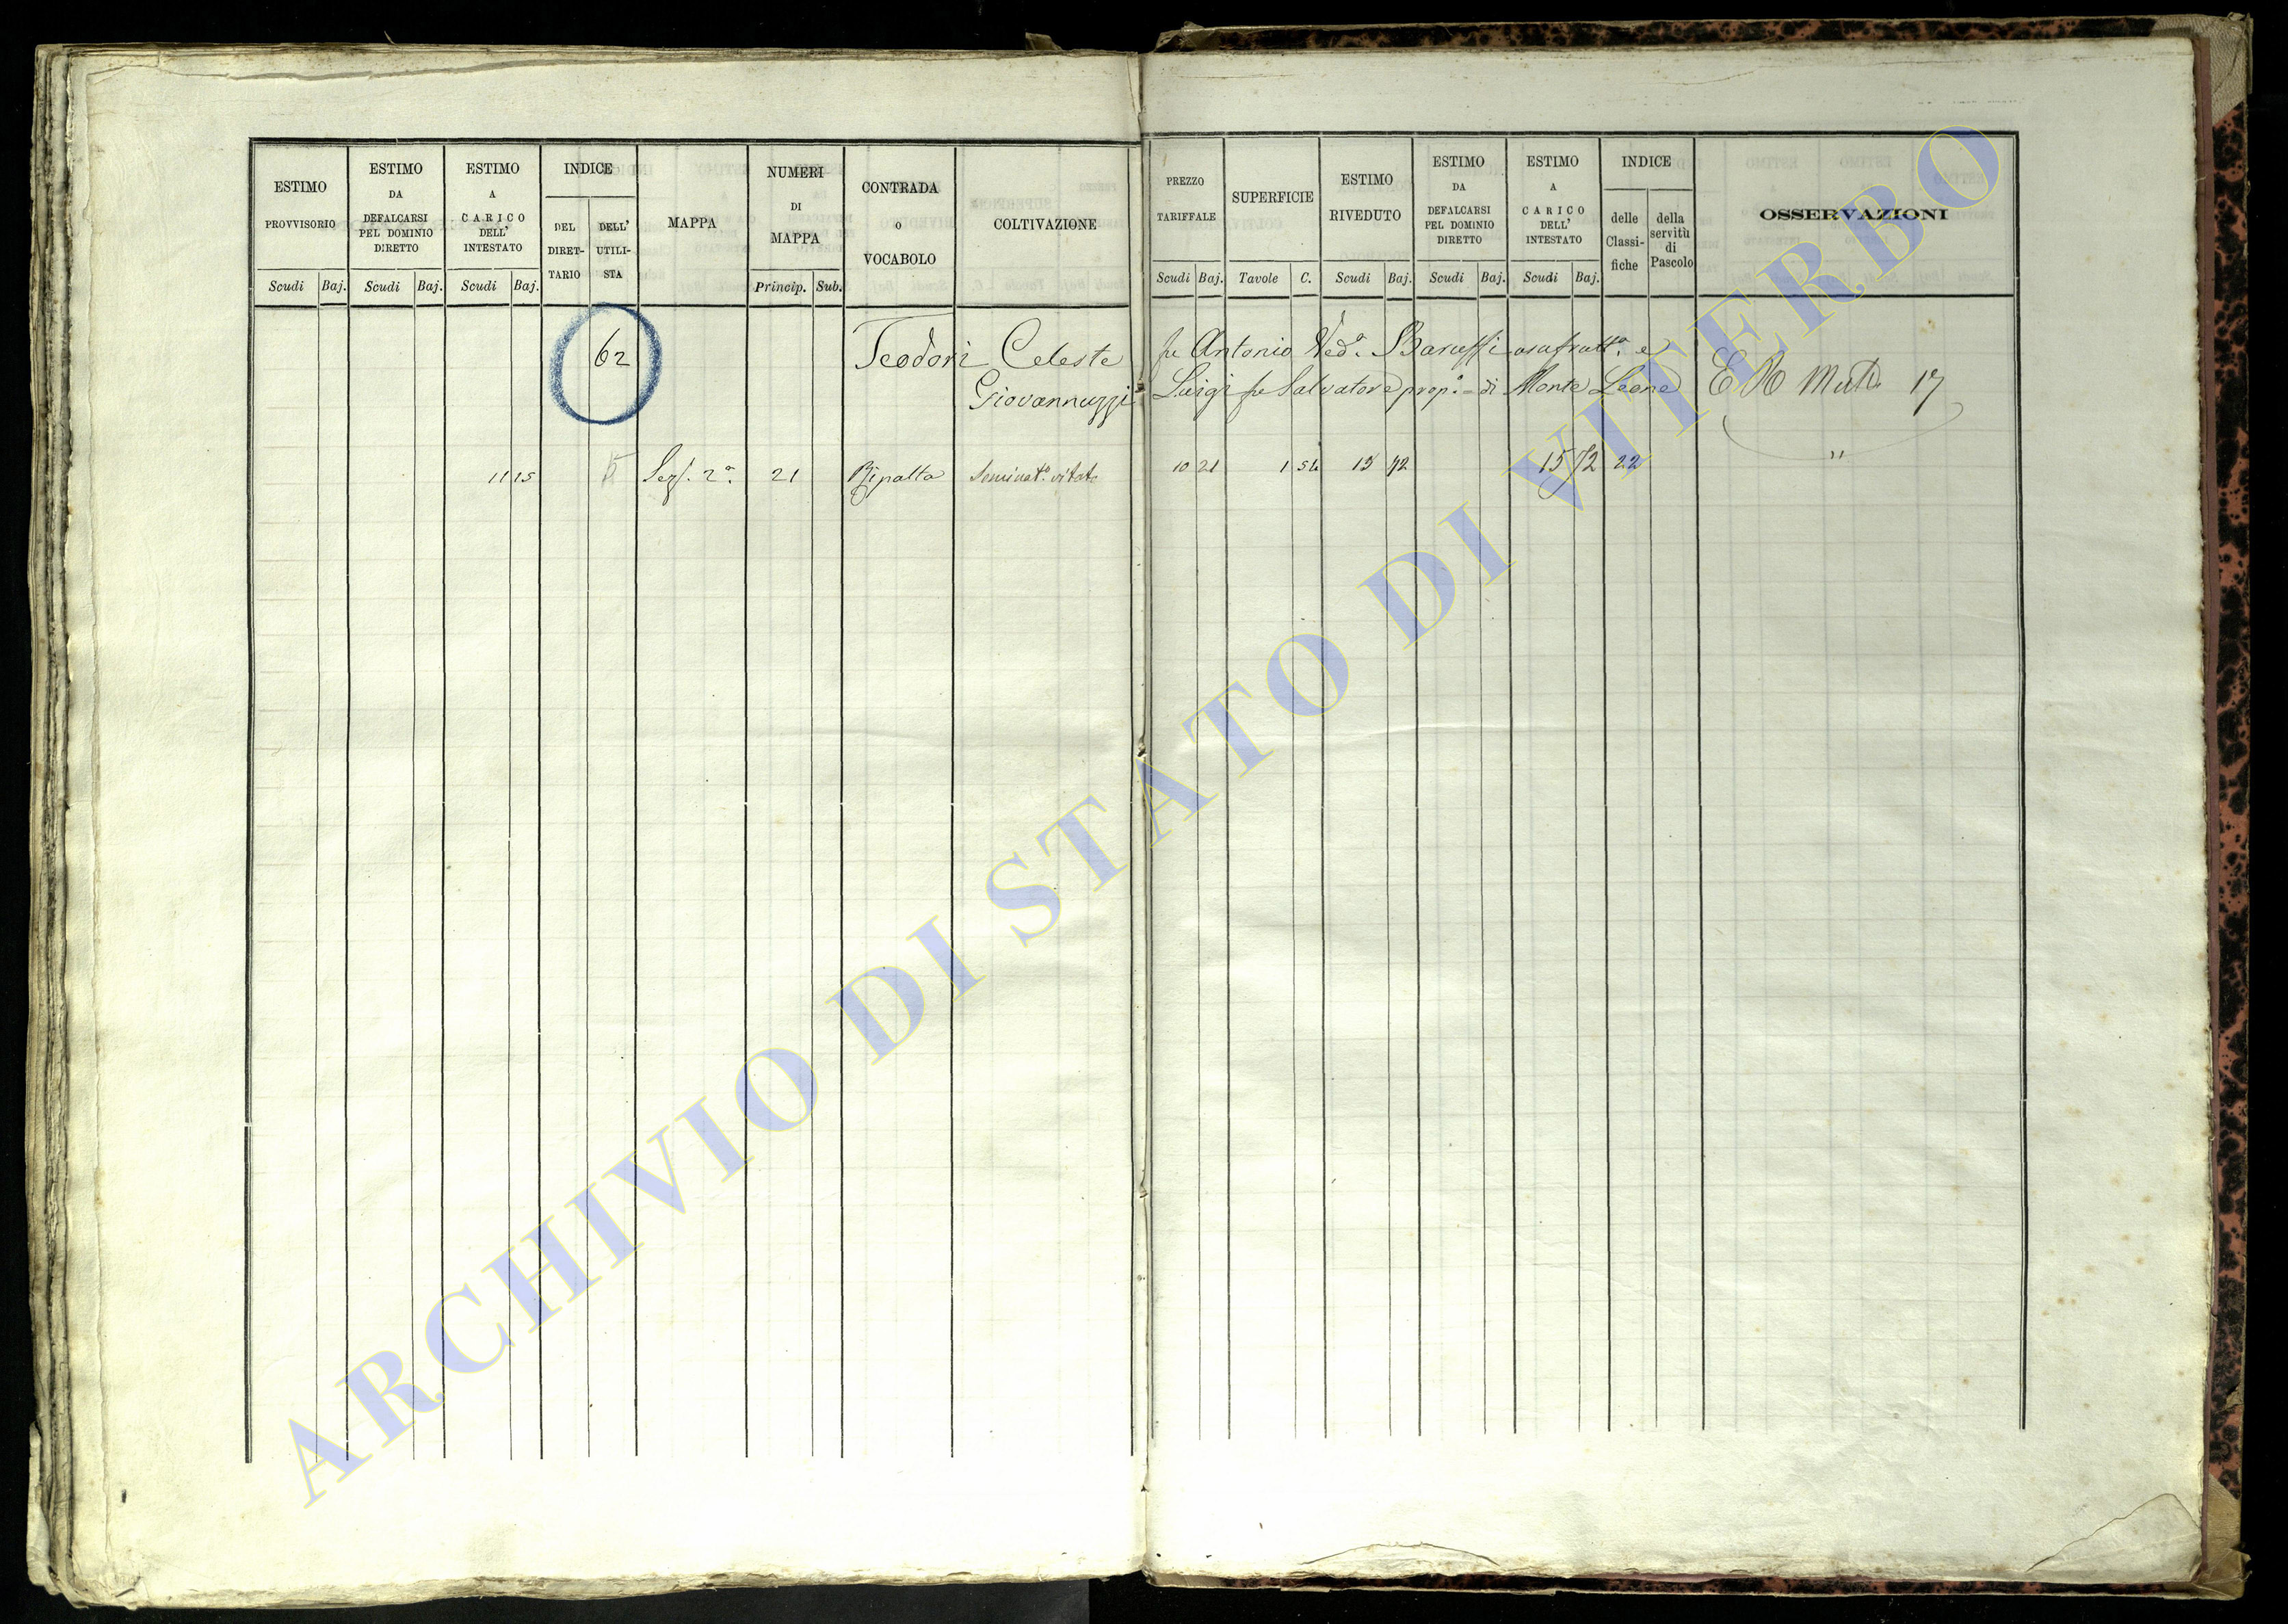 ESTIMO PROVVISORIO
Scudi Baj.
ESTIMO DA DEFALCARSI PEL DOMINIO DIRETTO
Scudi Baj.
ESTIMO A CARICO DELL' INTESTATO
Scudi Baj.
INDICE
DEL DIRET-TARIO
DELL' UTILI-STA
MAPPA
NUMERI DI MAPPA
Princip. Sub.
CONTRADA O VOCABOLO
COLTIVAZIONE
PREZZO TARIFFALE
Scudi Baj.
SUPERFICIE
Tavole C.
ESTIMO RIVEDUTO
Scudi Baj.
ESTIMO DA DEFALCARSI PEL DOMINIO DIRETTO
Scudi Baj.
ESTIMO A CARICO DELL' INTESTATO
Scudi Baj.
INDICE
delle Classi-fiche
della servitù di Pascolo
OSSERVAZIONI
62 Teodori Celeste fu Antonio Ved.ª Baruffi usufrutt.ª e
Giovannuzzi Luigi fu Salvatore prop.º di Monte Leone
17
11 15 Sez. 2ª 21 Ripalta Seminat.º vitato 10 21 1 54 15 72 15 72 22 "
ARCHIVIO DI STATO DI VITERBO